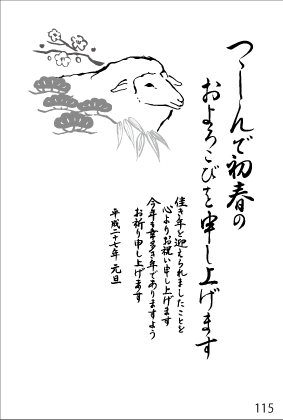 つゝしんで初春の
およろこびを申し上げます
佳き年を迎えられましたことを
心よりお祝い申し上げます
今年も幸多き年でありますよう
お祈り申し上げます
平成二十七年 元旦
115